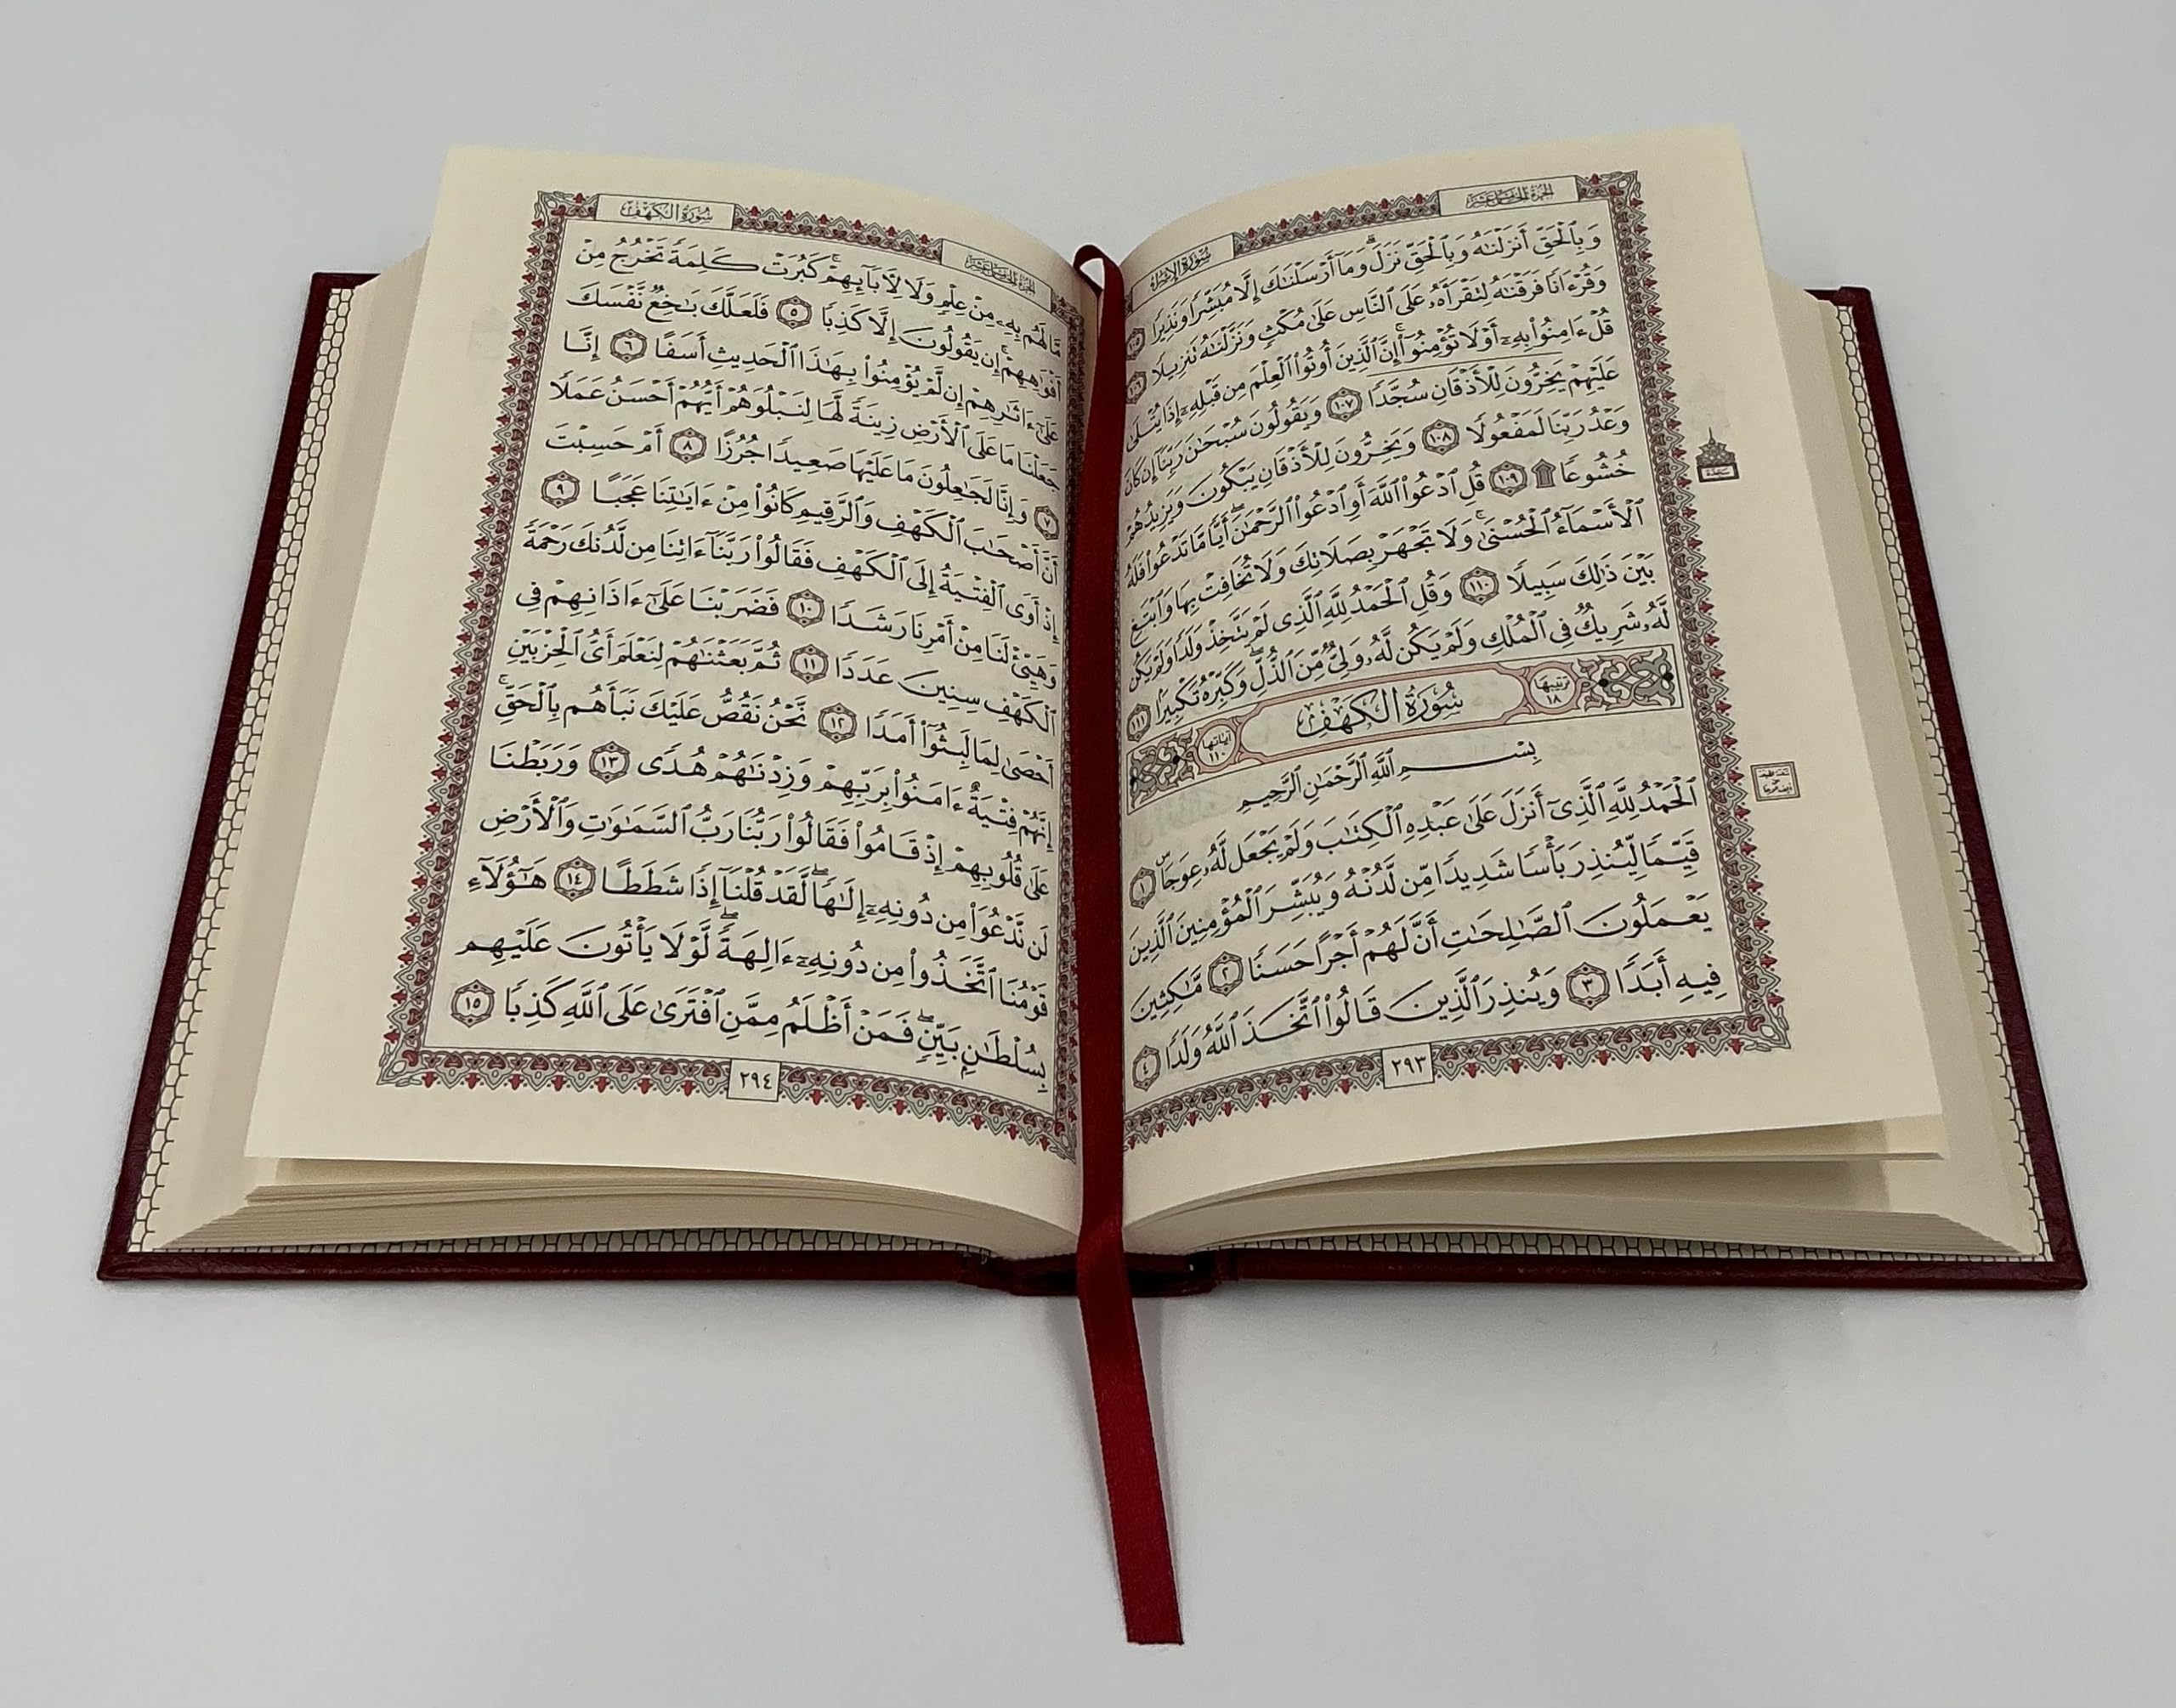 سُورَةُ الإِسۡرَاءِ
الجُزۡءُ الخَامِسَ عَشَرَ
وَبِٱلۡحَقِّ أَنزَلۡنَٰهُ وَبِٱلۡحَقِّ نَزَلَۗ وَمَآ أَرۡسَلۡنَٰكَ إِلَّا مُبَشِّرٗا وَنَذِيرٗا ١٠٥
وَقُرۡءَانٗا فَرَقۡنَٰهُ لِتَقۡرَأَهُۥ عَلَى ٱلنَّاسِ عَلَىٰ مُكۡثٖ وَنَزَّلۡنَٰهُ تَنزِيلٗا ١٠٦
قُلۡ ءَامِنُواْ بِهِۦٓ أَوۡ لَا تُؤۡمِنُوٓاْۚ إِنَّ ٱلَّذِينَ أُوتُواْ ٱلۡعِلۡمَ مِن قَبۡلِهِۦٓ إِذَا يُتۡلَىٰ
عَلَيۡهِمۡ يَخِرُّونَ لِلۡأَذۡقَانِ سُجَّدٗا ١٠٧ وَيَقُولُونَ سُبۡحَٰنَ رَبِّنَآ إِن كَانَ
وَعۡدُ رَبِّنَا لَمَفۡعُولٗا ١٠٨ وَيَخِرُّونَ لِلۡأَذۡقَانِ يَبۡكُونَ وَيَزِيدُهُمۡ
خُشُوعٗا ۩ ١٠٩ قُلِ ٱدۡعُواْ ٱللَّهَ أَوِ ٱدۡعُواْ ٱلرَّحۡمَٰنَۖ أَيّٗا مَّا تَدۡعُواْ فَلَهُ
ٱلۡأَسۡمَآءُ ٱلۡحُسۡنَىٰۚ وَلَا تَجۡهَرۡ بِصَلَاتِكَ وَلَا تُخَافِتۡ بِهَا وَٱبۡتَغِ
بَيۡنَ ذَٰلِكَ سَبِيلٗا ١١٠ وَقُلِ ٱلۡحَمۡدُ لِلَّهِ ٱلَّذِي لَمۡ يَتَّخِذۡ وَلَدٗا وَلَمۡ يَكُن
لَّهُۥ شَرِيكٞ فِي ٱلۡمُلۡكِ وَلَمۡ يَكُن لَّهُۥ وَلِيّٞ مِّنَ ٱلذُّلِّۖ وَكَبِّرۡهُ تَكۡبِيرَۢا ١١١
ترتيبها ١٨ سُورَةُ الكَهۡفِ آياتها ١١٠
بِسۡمِ ٱللَّهِ ٱلرَّحۡمَٰنِ ٱلرَّحِيمِ
ٱلۡحَمۡدُ لِلَّهِ ٱلَّذِيٓ أَنزَلَ عَلَىٰ عَبۡدِهِ ٱلۡكِتَٰبَ وَلَمۡ يَجۡعَل لَّهُۥ عِوَجَاۜ ١
قَيِّمٗا لِّيُنذِرَ بَأۡسٗا شَدِيدٗا مِّن لَّدُنۡهُ وَيُبَشِّرَ ٱلۡمُؤۡمِنِينَ ٱلَّذِينَ
يَعۡمَلُونَ ٱلصَّٰلِحَٰتِ أَنَّ لَهُمۡ أَجۡرًا حَسَنٗا ٢ مَّٰكِثِينَ
فِيهِ أَبَدٗا ٣ وَيُنذِرَ ٱلَّذِينَ قَالُواْ ٱتَّخَذَ ٱللَّهُ وَلَدٗا ٤
٢٩٣
سجدة
سُورَةُ الكَهۡفِ
الجُزۡءُ الخَامِسَ عَشَرَ
مَّا لَهُم بِهِۦ مِنۡ عِلۡمٖ وَلَا لِأٓبَآئِهِمۡۚ كَبُرَتۡ كَلِمَةٗ تَخۡرُجُ مِنۡ
أَفۡوَٰهِهِمۡۚ إِن يَقُولُونَ إِلَّا كَذِبٗا ٥ فَلَعَلَّكَ بَٰخِعٞ نَّفۡسَكَ
عَلَىٰٓ ءَاثَٰرِهِمۡ إِن لَّمۡ يُؤۡمِنُواْ بِهَٰذَا ٱلۡحَدِيثِ أَسَفًا ٦ إِنَّا
جَعَلۡنَا مَا عَلَى ٱلۡأَرۡضِ زِينَةٗ لَّهَا لِنَبۡلُوَهُمۡ أَيُّهُمۡ أَحۡسَنُ عَمَلٗا
٧ وَإِنَّا لَجَٰعِلُونَ مَا عَلَيۡهَا صَعِيدٗا جُرُزًا ٨ أَمۡ حَسِبۡتَ
أَنَّ أَصۡحَٰبَ ٱلۡكَهۡفِ وَٱلرَّقِيمِ كَانُواْ مِنۡ ءَايَٰتِنَا عَجَبًا ٩
إِذۡ أَوَى ٱلۡفِتۡيَةُ إِلَى ٱلۡكَهۡفِ فَقَالُواْ رَبَّنَآ ءَاتِنَا مِن لَّدُنكَ رَحۡمَةٗ
وَهَيِّئۡ لَنَا مِنۡ أَمۡرِنَا رَشَدٗا ١٠ فَضَرَبۡنَا عَلَىٰٓ ءَاذَانِهِمۡ فِي
ٱلۡكَهۡفِ سِنِينَ عَدَدٗا ١١ ثُمَّ بَعَثۡنَٰهُمۡ لِنَعۡلَمَ أَيُّ ٱلۡحِزۡبَيۡنِ
أَحۡصَىٰ لِمَا لَبِثُوٓاْ أَمَدٗا ١٢ نَّحۡنُ نَقُصُّ عَلَيۡكَ نَبَأَهُم بِٱلۡحَقِّۚ
إِنَّهُمۡ فِتۡيَةٌ ءَامَنُواْ بِرَبِّهِمۡ وَزِدۡنَٰهُمۡ هُدٗى ١٣ وَرَبَطۡنَا
عَلَىٰ قُلُوبِهِمۡ إِذۡ قَامُواْ فَقَالُواْ رَبُّنَا رَبُّ ٱلسَّمَٰوَٰتِ وَٱلۡأَرۡضِ
لَن نَّدۡعُوَاْ مِن دُونِهِۦٓ إِلَٰهٗاۖ لَّقَدۡ قُلۡنَآ إِذٗا شَطَطًا ١٤ هَٰٓؤُلَآءِ
قَوۡمُنَا ٱتَّخَذُواْ مِن دُونِهِۦٓ ءَالِهَةٗۖ لَّوۡلَا يَأۡتُونَ عَلَيۡهِم
بِسُلۡطَٰنِۭ بَيِّنٖۖ فَمَنۡ أَظۡلَمُ مِمَّنِ ٱفۡتَرَىٰ عَلَى ٱللَّهِ كَذِبٗا ١٥
٢٩٤